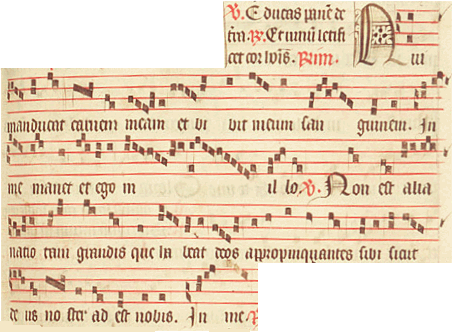 V. Educas panē de
tr̄ra R. Et vinū letifi
cet cor hoīs. Rm̄.
Qui
manducat carnem meam et bi bit meum san guinem. In
me manet et ego in il lo. V. Non est alia
natio tam grandis que ha beat deos appropinquantes sibi sicut
de us no ster ad est nobis. In me V